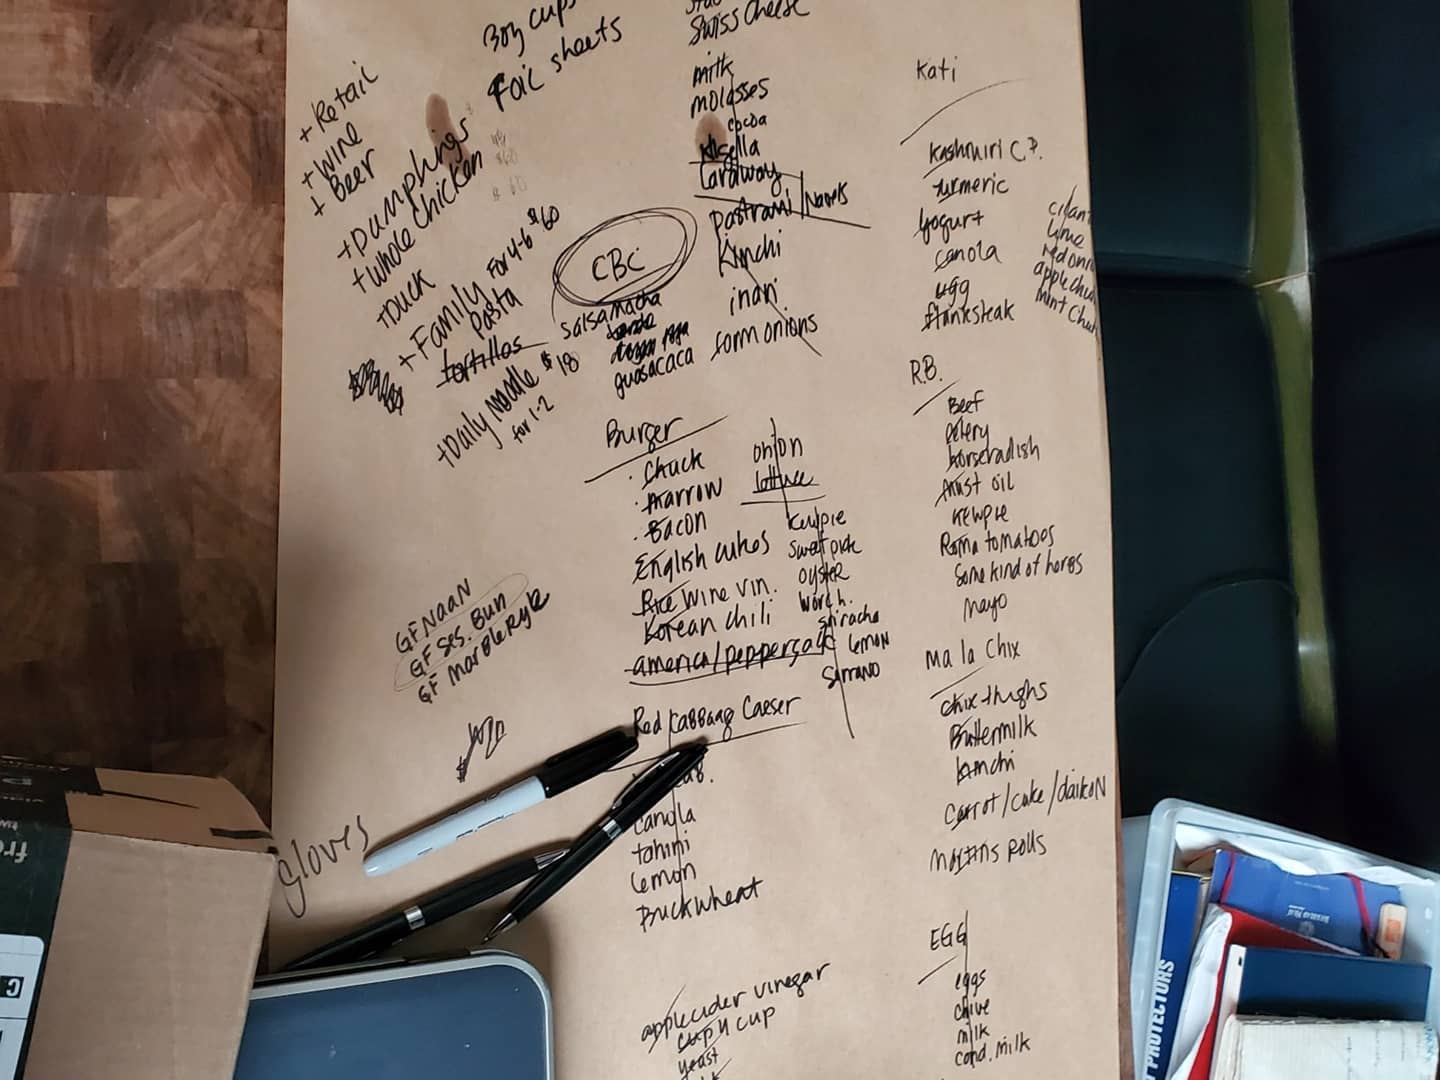 3oz cups
Foil sheets
+ Retail
+ Wine
+ Beer
+ Dumplings
+ Whole Chicken
+ Duck
+ Family for 4-6 $60
Pasta
tortillas
+ Daily Noodle $18
for 1-2
CBC
salsa macha
guasacaca
Swiss Cheese
milk
molasses
cocoa
Nigella
Caraway
Pastrami
Kimchi
inari
form onions
Burger
. Chuck
. marrow
. Bacon
English cukes
Rice Wine Vin.
Korean Chili
america/pepperjack
onion
lettuce
kewpie
oyster
worch.
sriracha
lemon
serrano
GF NaaN
GF Ses. Bun
GF Marble Rye
Gloves
Red Cabbage Caeser
canola
tahini
lemon
Buckwheat
apple cider vinegar
cup 4 cup
yeast
Kati
Kashmiri C.P.
turmeric
Yogurt
canola
egg
flanksteak
lime
R.B.
Beef
celery
horseradish
kewpie
Roma tomatoes
Some kind of herbs
mayo
Ma la Chix
chix thighs
Buttermilk
kimchi
carrot/cuke/daikon
martins rolls
EGG
eggs
chive
milk
cond. milk
PROTECTORS